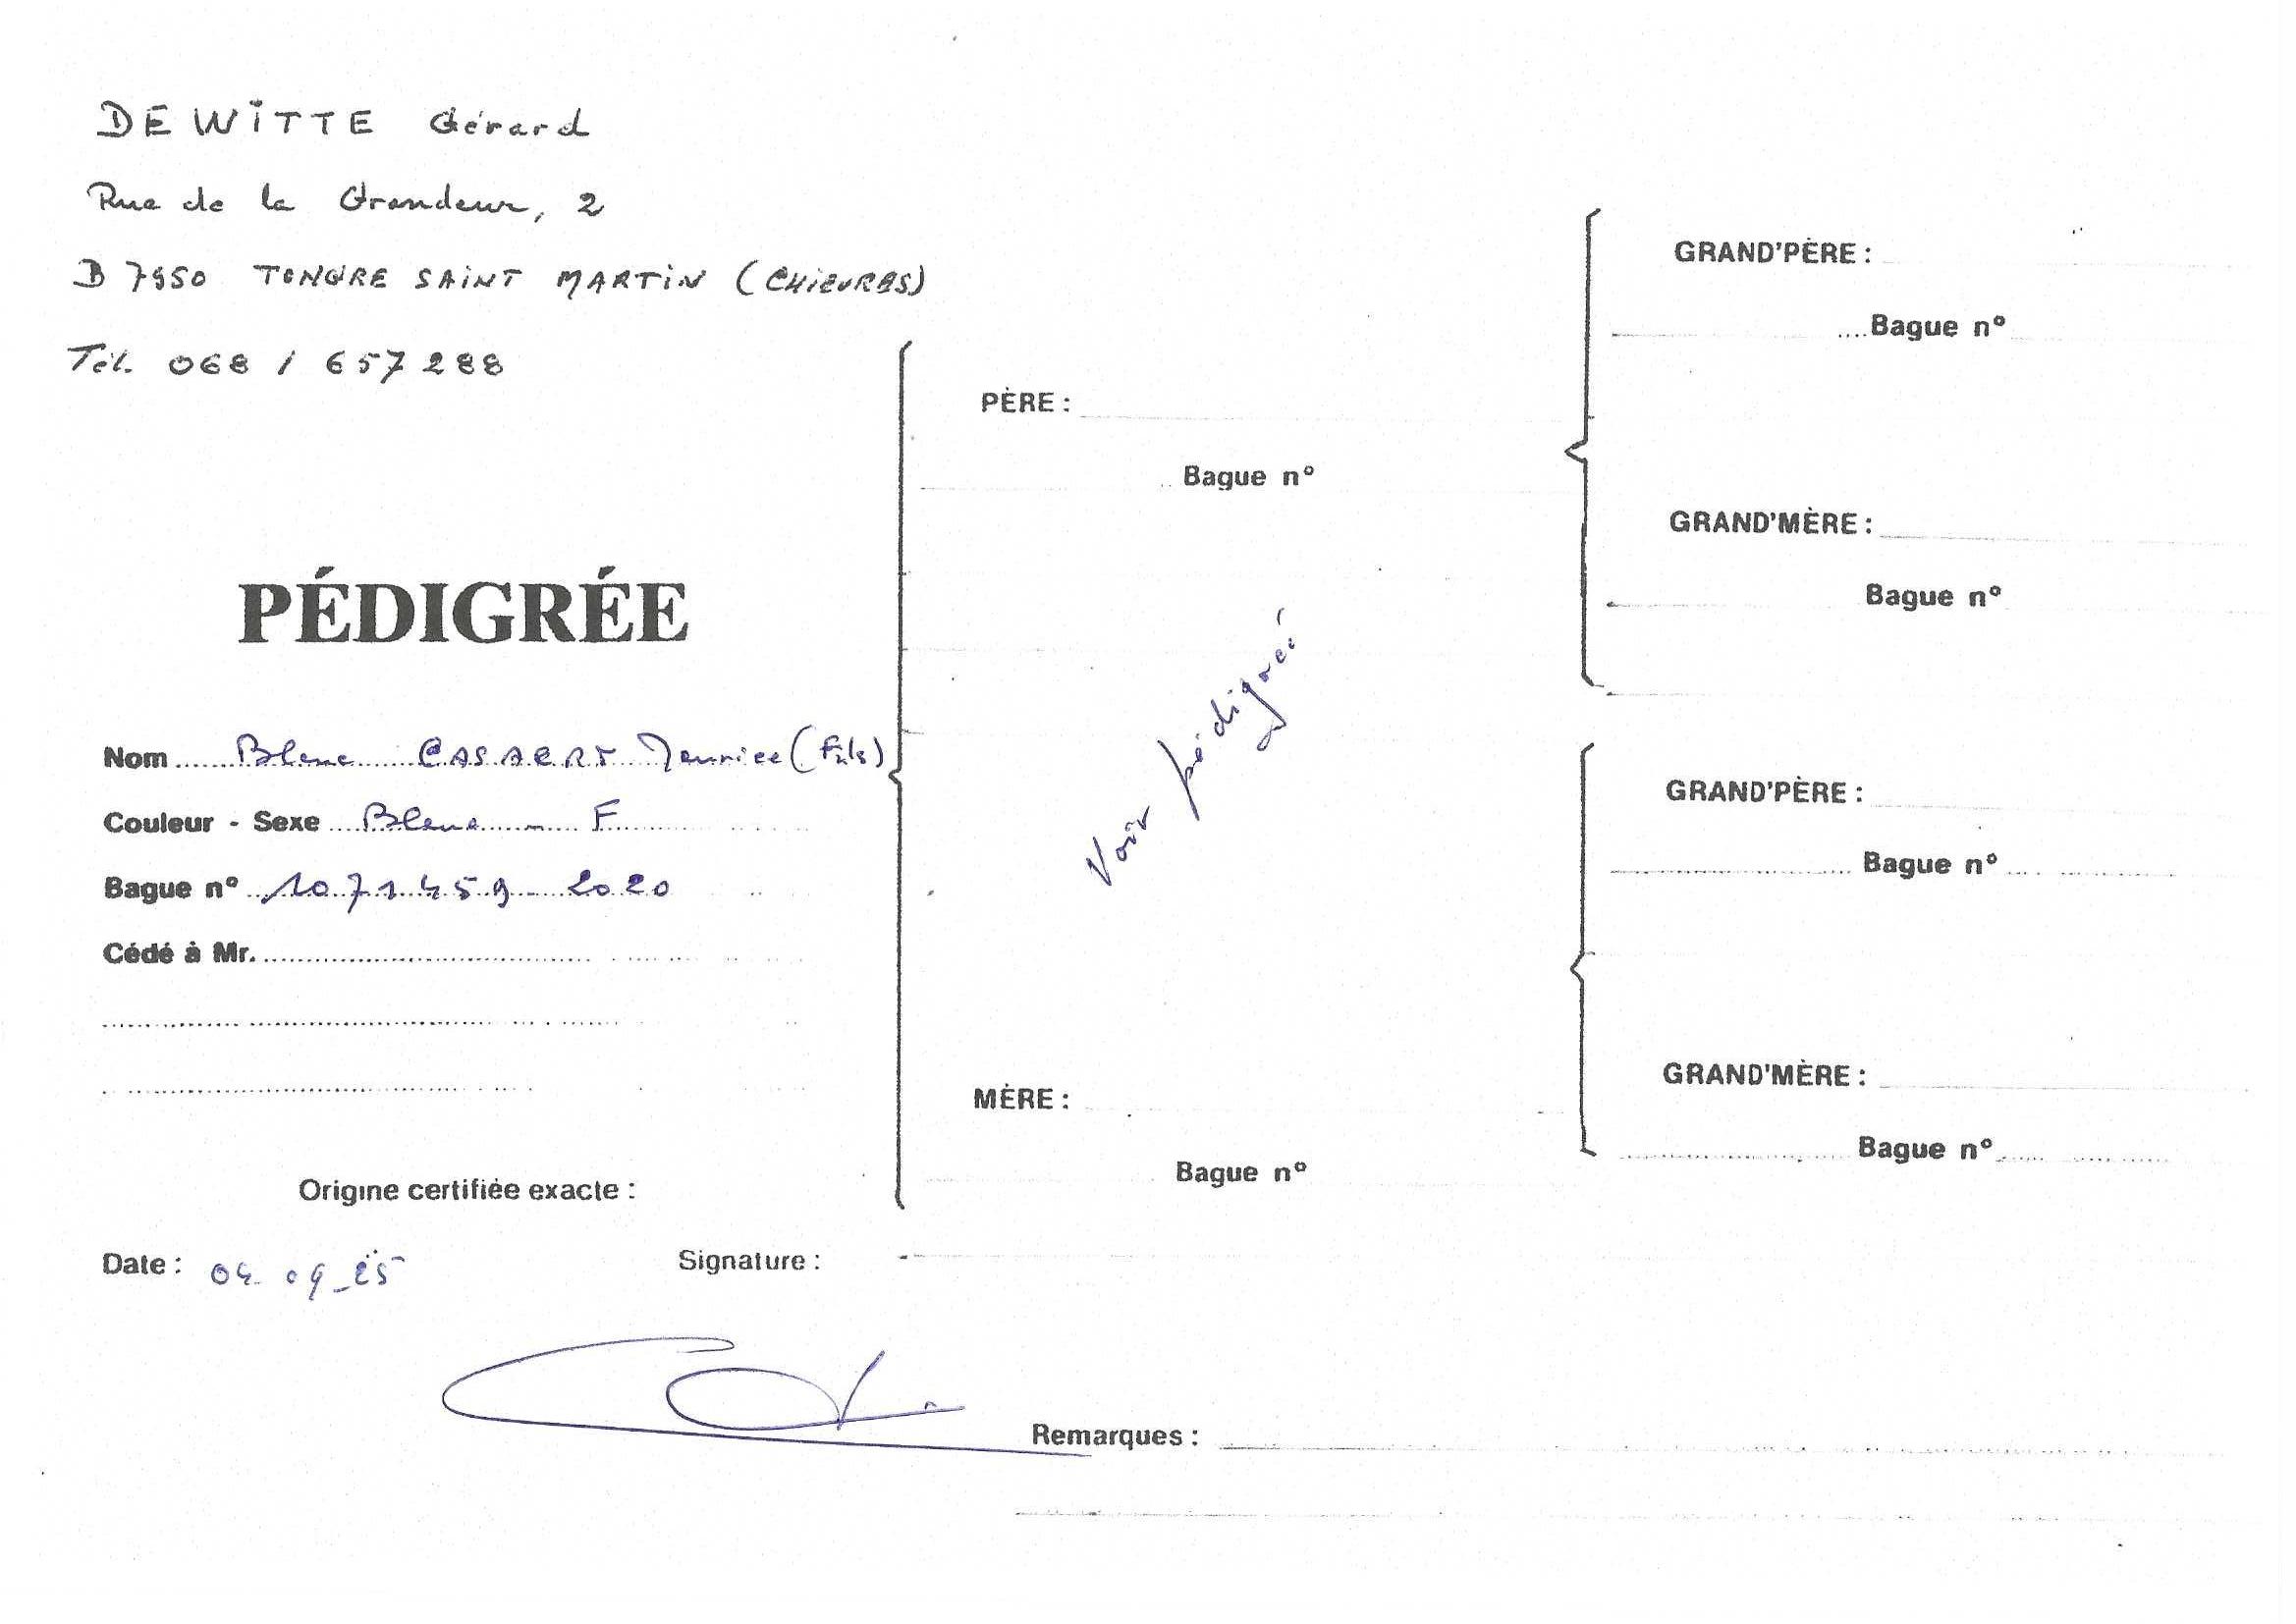 DEWITTE Gérard
Rue de la Grandeur, 2
B 7950 TONGRE SAINT MARTIN (CHIEVRES)
Tél. 068 / 657288
PÉDIGRÉE
Nom CASAERT Maurice (fils)
Couleur - Sexe F
Bague n° 1071459 - 2020
Cédé à Mr.
Origine certifiée exacte :
Date : 04-09-25
Signature :
PÈRE :
Bague n°
Voir pédigrée
MÈRE :
Bague n°
GRAND'PÈRE :
Bague n°
GRAND'MÈRE :
Bague n°
GRAND'PÈRE :
Bague n°
GRAND'MÈRE :
Bague n°
Remarques :